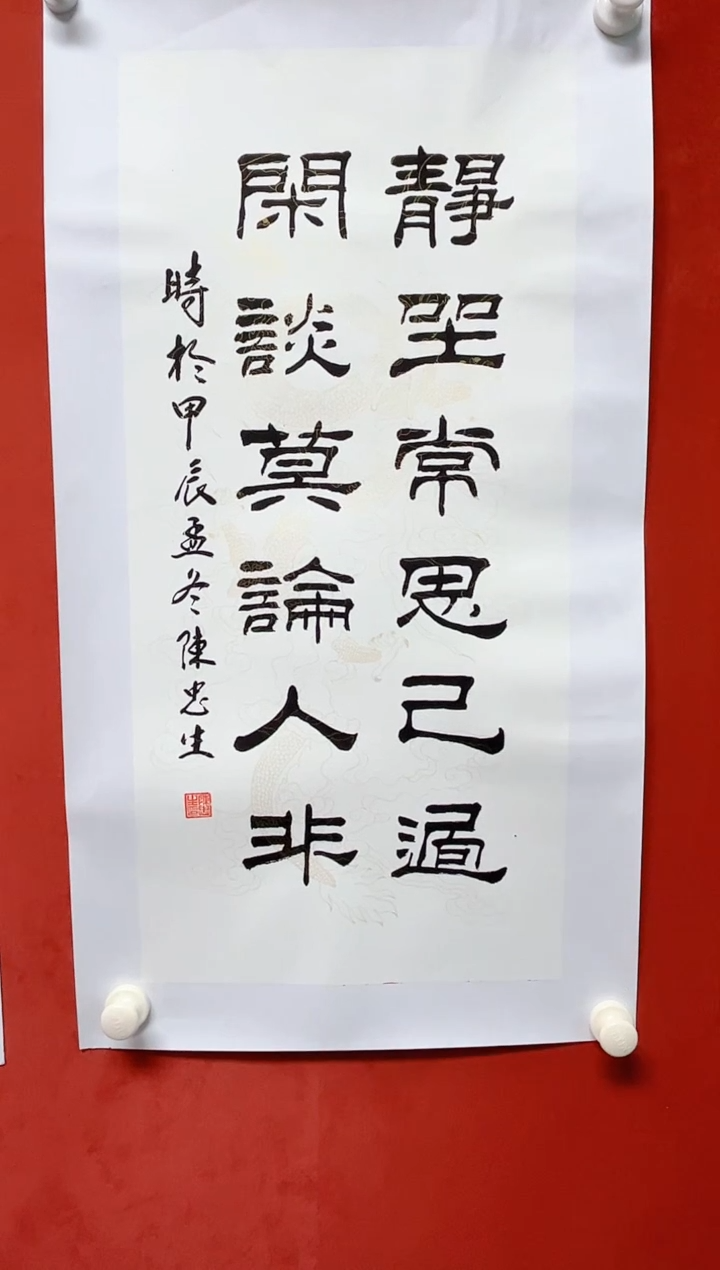 靜坐常思己過
閑談莫論人非
時於甲辰孟冬陳忠生